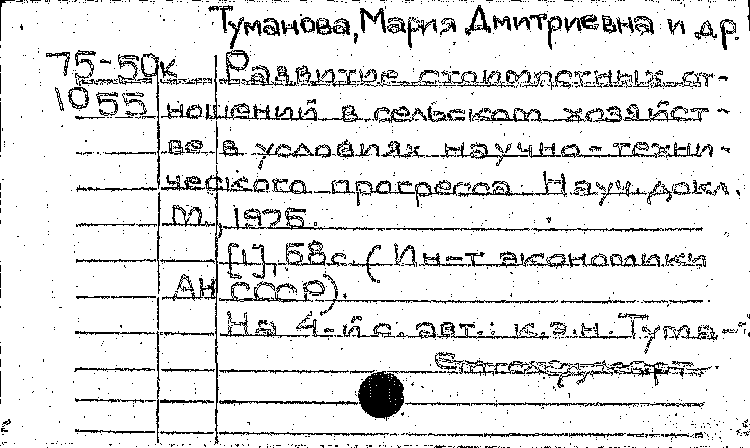 Туманова, Мария Дмитриевна и др.
75-50к Развитие стоимостных от-
1055 ношений в сельском хозяйст-
ве в условиях научно-техни-
ческого прогресса. Науч. докл.
М., 1975.
[1], 58 с. (Ин-т экономики
АН СССР).
На 4-й с. авт.: к.э.н. Тума-